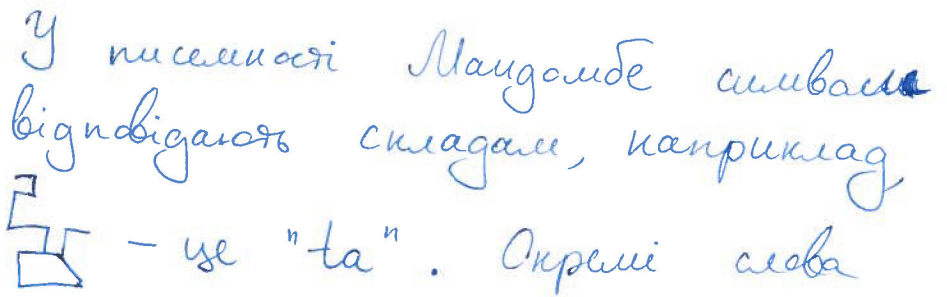 У писемності Мандомбе символи
відповідають складам, наприклад,
— це "ta". Окремі слова